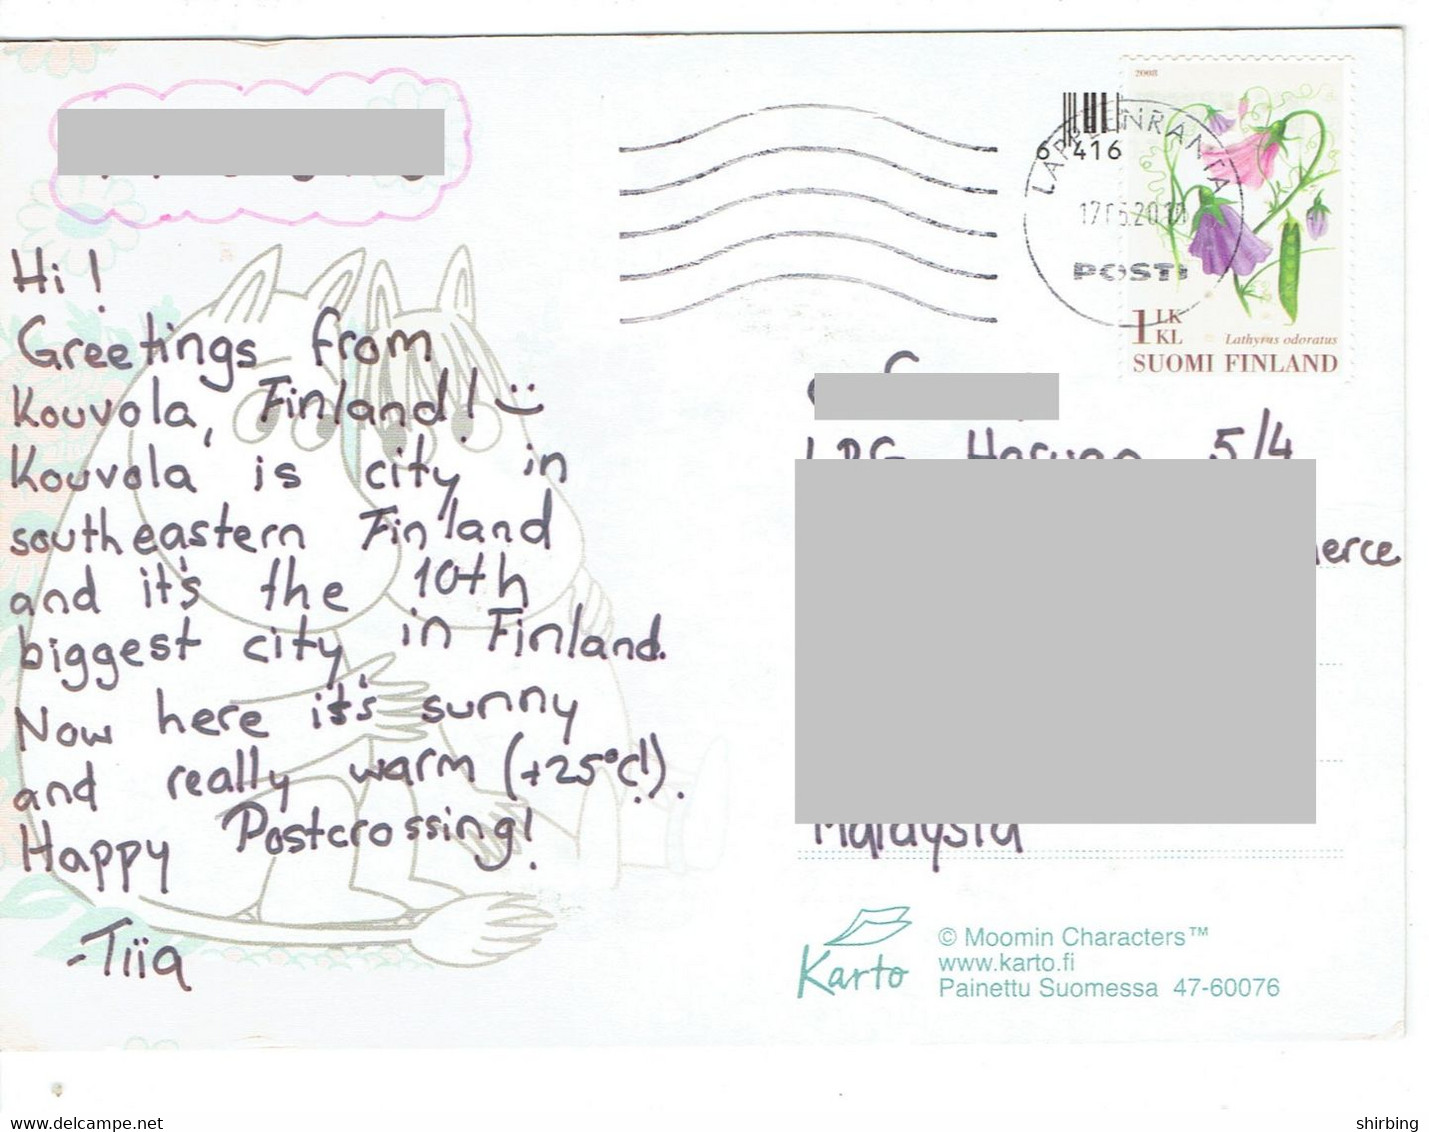 Hi!
Greetings from
Kouvola, Finland! :)
Kouvola is city in
southeastern Finland
and it's the 10th
biggest city in Finland.
Now here it's sunny
and really warm (+25°C!).
Happy Postcrossing!
-Tiia
LAPPEENRANTA
POSTI
6 416
2008
1 LK
KL
Lathyrus odoratus
SUOMI FINLAND
5/4
Malaysia
Karto
© Moomin Characters™
www.karto.fi
Painettu Suomessa 47-60076
delcampe.net
shirbing